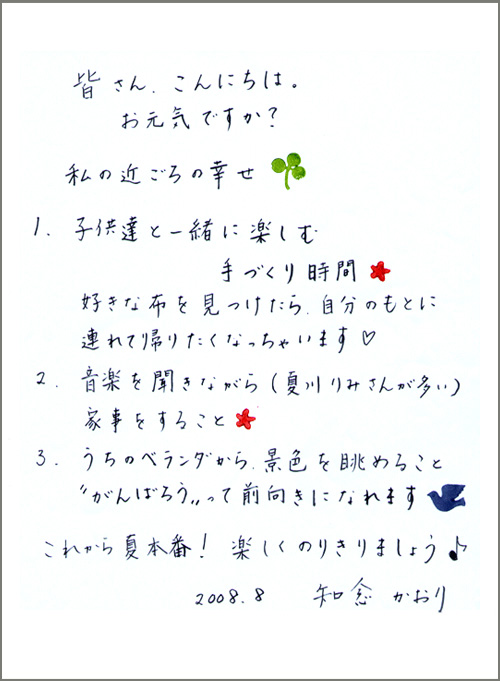 皆さん、こんにちは。
お元気ですか?
私の近ごろの幸せ
1. 子供達と一緒に楽しむ
手づくり時間
好きな布を見つけたら、自分のもとに
連れて帰りたくなっちゃいます♡
2. 音楽を聞きながら(夏川りみさんが多い)
家事をすること
3. うちのベランダから、景色を眺めること
"がんばろう„って前向きになれます
これから夏本番! 楽しくのりきりましょう♪
2008.8 知念 かおり